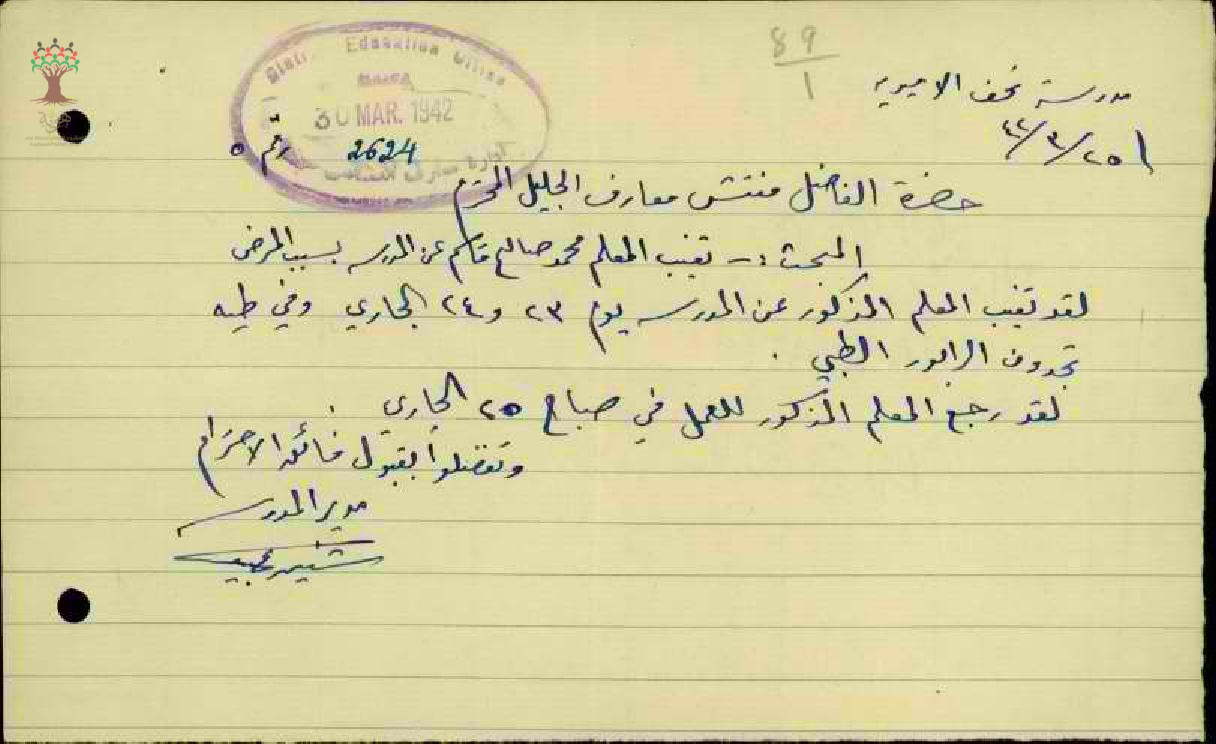 89
1
مدرسة نحف الاميرية
٢٥/٣/٤٢
Distr. Education Office
HAIFA
30 MAR. 1942
2624
رقم ٥
حضرة الفاضل مفتش معارف الجليل المحترم
المبحث :- تغيب المعلم محمد صالح قاسم عن المدرسه بسبب المرض
لقد تغيب المعلم المذكور عن المدرسه يوم ٢٣ و ٢٤ الجاري وفي طيه
تجدون الرابور الطبي .
لقد رجع المعلم المذكور للعمل في صباح ٢٥ الجاري
وتفضلوا بقبول فائق الاحترام
مدير المدرسه